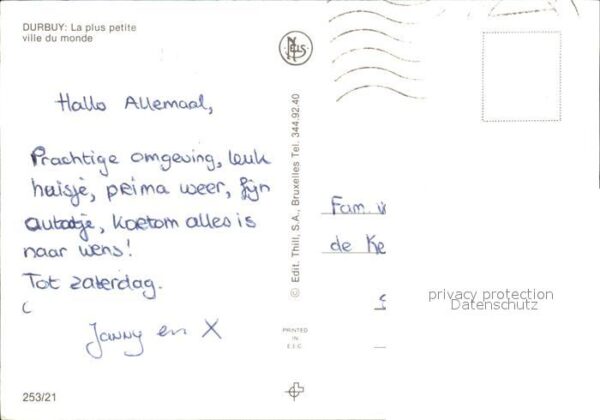 DURBUY: La plus petite
ville du monde
NELS
Hallo Allemaal,
Prachtige omgeving, leuk
huisje, prima weer, fijn
autootje, kortom alles is
naar wens!
Tot zaterdag.
Janny en X
253/21
© Edit. Thill, S.A., Bruxelles Tel. 344.92.40
PRINTED
IN
E.E.C.
Fam.
de Ke
privacy protection
Datenschutz